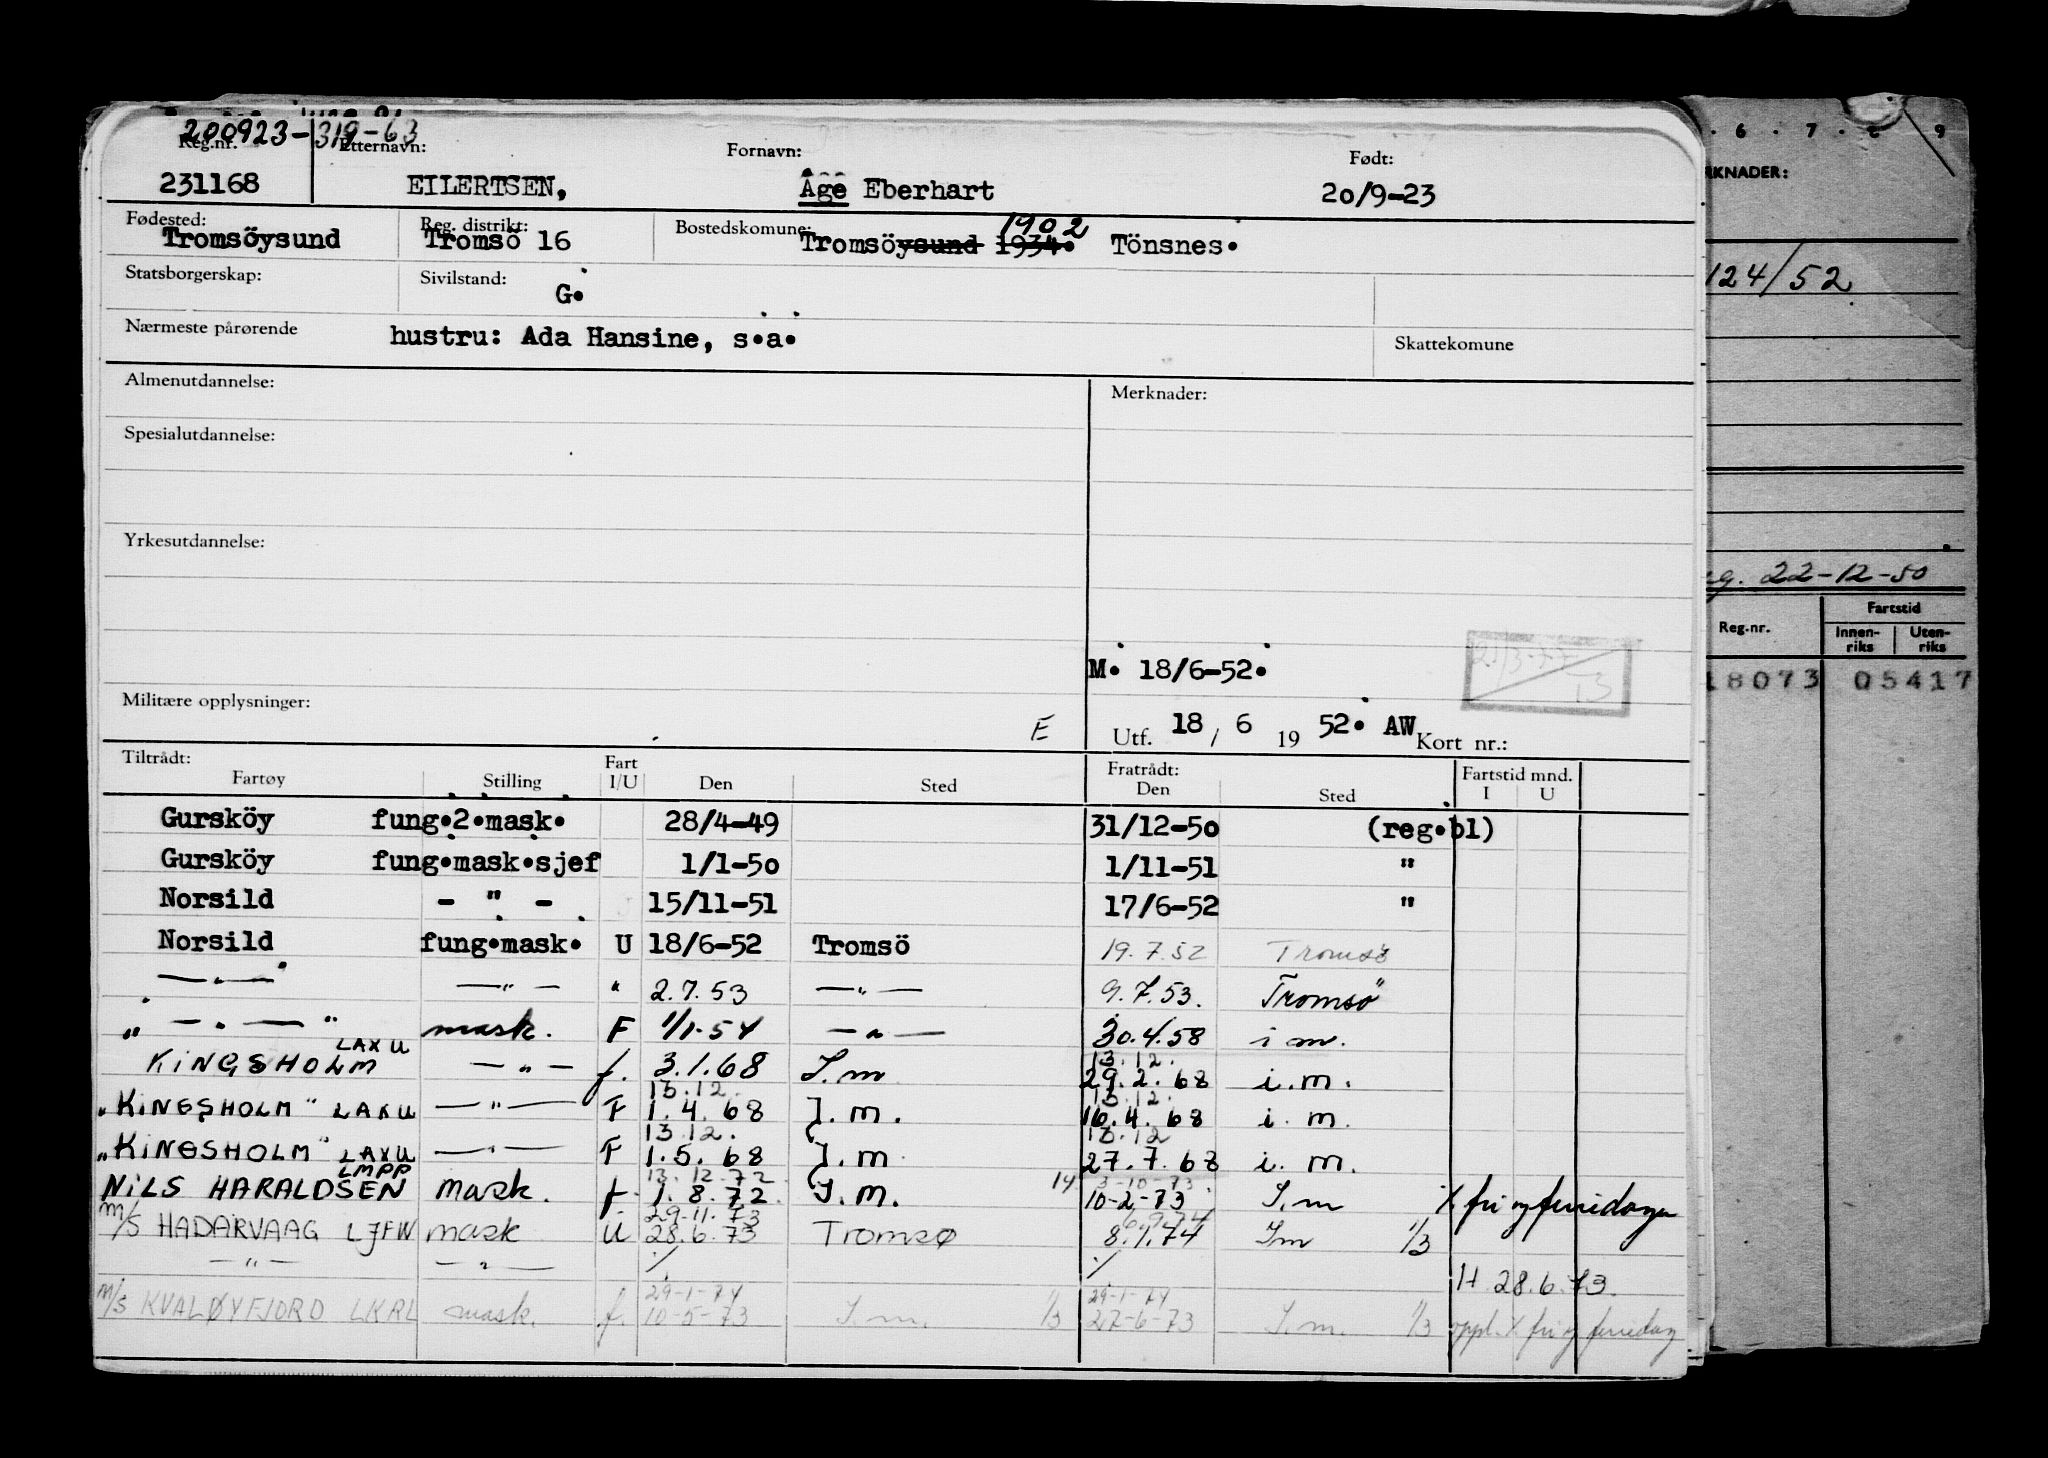 200923-319-63
Reg.nr. Etternavn: Fornavn: Født:
231168 EILERTSEN, Åge Eberhart 20/9-23
Fødested: Reg. distrikt: Bostedskomune: 1902
Tromsöysund Tromsö 16 Tromsöysund 1934. Tönsnes.
Statsborgerskap: Sivilstand: G.
Nærmeste pårørende hustru: Ada Hansine, s.a. Skattekomune
Almenutdannelse: Merknader:
Spesialutdannelse:
Yrkesutdannelse:
M. 18/6-52.
Militære opplysninger: E
Utf. 18 / 6 19 52. AW Kort nr.:
Tiltrådt: Fart Fratrådt: Fartstid mnd.
Fartøy Stilling I/U Den Sted Den Sted I U
Gursköy fung.2.mask. 28/4-49 31/12-50 (reg.bl)
Gursköy fung.mask.sjef 1/1-50 1/11-51 "
Norsild - " - 15/11-51 17/6-52 "
Norsild fung.mask. U 18/6-52 Tromsö 19.7.52 Tromsö
— " — — " — " 2.7.53 — " — 9.7.53. Tromsö
" — " — " mask. F 1/1-54 — " — 30.4.58 i m.
LAXU 13.12.
KINGSHOLM — " — f. 3.1.68 I.m 29.2.68 i.m.
13.12. 13.12.
"KINGSHOLM" LAXU — " — F 1.4.68 I.m. 16.4.68 i.m.
13.12. 13.12
"KINGSHOLM" LAXU — " — F 1.5.68 I.m 27.7.68 i.m.
LMPP 13.12.72 3-10-73.
NILS HARALDSEN mask. f. 1.8.72. I.m. 14. 10-2-73 I.m X fri og feriedager
29-11.73 6.9.74
m/s HADARVAAG LJFW mask U 28.6.73 Tromsø 8.1.74 Im 1/3
— " — — " — ./. ./. H 28.6.73.
29-1-74 29-1-74
m/s KVALØYFJORD LKRL mask. f. 10-5-73 I.m. 1/3 27-6-73 I.m. 1/3 oppl. X fri og feriedag
6 . 7 . 8 9
RKNADER:
124/52
eg. 22-12-50
Reg.nr. Fartstid
Innen-riks Uten-riks
18073 05417